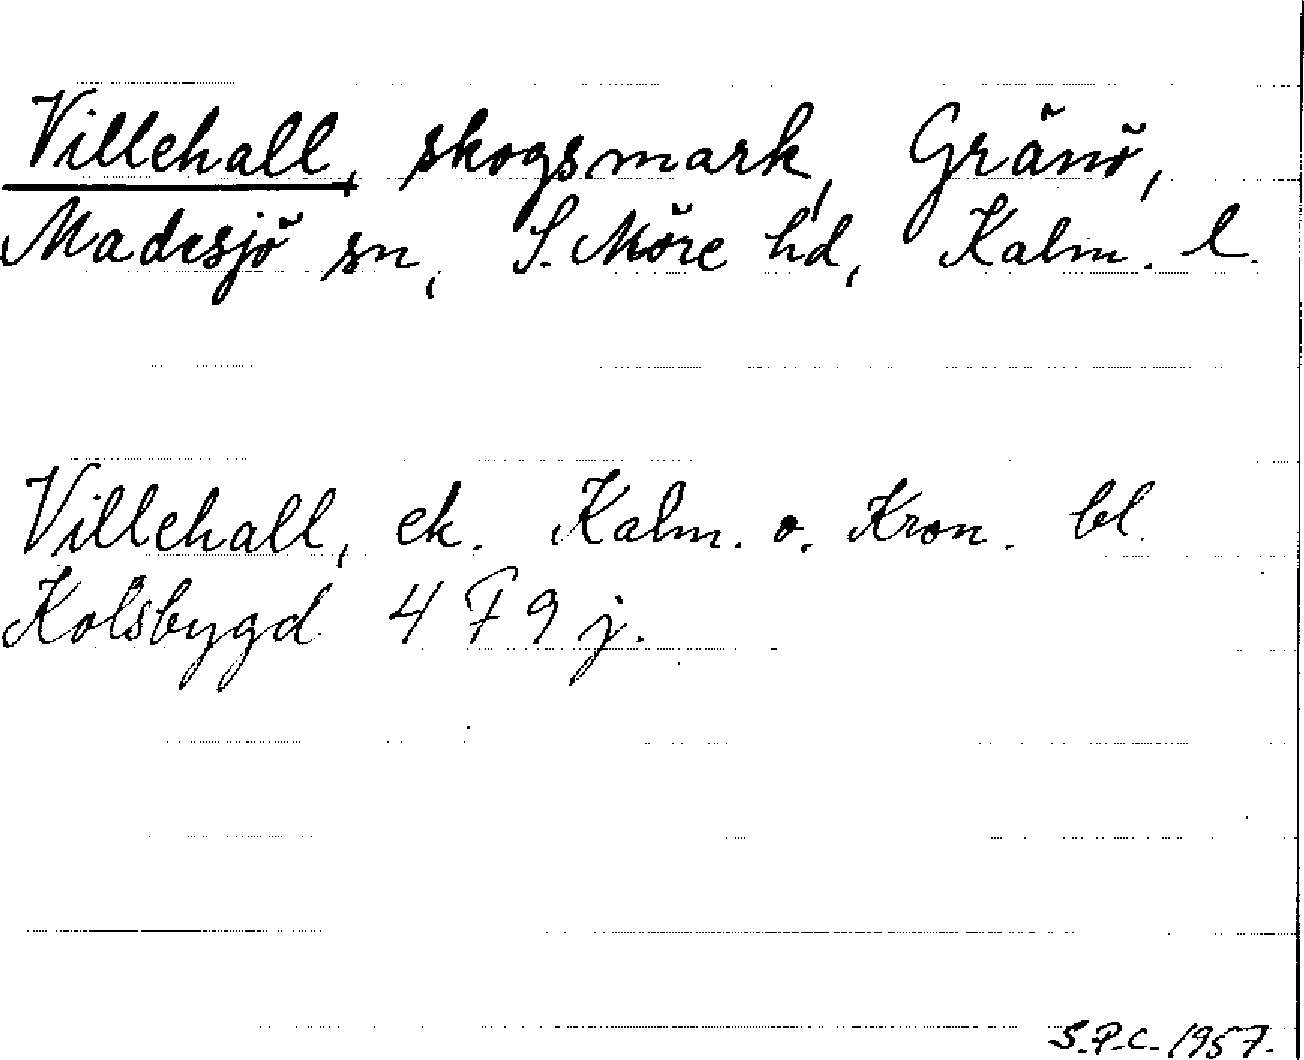 Villehall, skogsmark, Gränö,
Madesjö sn, S. Möre hd, Kalm. l.
Villehall, ek. Kalm. o. Kron. bl.
Kolsbygd 4 F 9 j.
S.P.C. 1957.